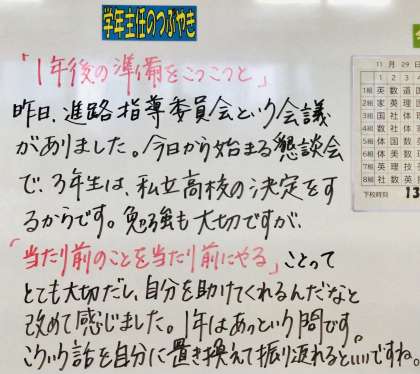 学年主任のつぶやき
「1年後の準備をこつこつと」
昨日、進路指導委員会という会議
がありました。今日から始まる懇談会
で、3年生は、私立高校の決定をす
るからです。勉強も大切ですが、
「当たり前のことを当たり前にやる」ことって
とても大切だし、自分を助けてくれるんだなと
改めて感じました。1年はあっという間です。
こういう話を自分に置き換えて振り返れるといいですね。
11月29日
1 2 3
1組 英 数 道
2組 家 英 理
3組 国 社 体
4組 数 社 体
5組 体 国 数
6組 体 美 数
7組 英 理 技
8組 社 数 英
下校時刻 13